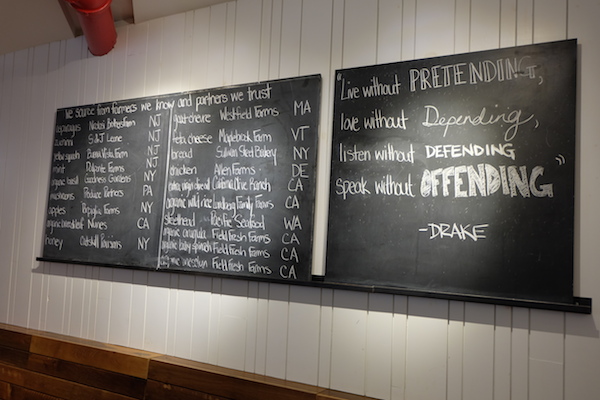 we source from farmers we know and partners we trust
asparagus NJ
zucchini S&J Leone NJ
yellow squash Buena Vista Farm NJ
mint Dolponte Farms NJ
organic basil Goodness Gardens NY
mushrooms Produce Partners PA
apples NY
organic broccoli leaf Nunes CA
honey NY
goat cheese Westfield Farms MA
feta cheese Maplebrook Farm VT
bread Sullivan Street Bakery NY
chicken Allen Farms DE
extra virgin olive oil California Olive Ranch CA
organic wild rice Lundberg Family Farms CA
steelhead Pacific Seafood WA
organic arugula Field Fresh Farms CA
organic baby spinach Field Fresh Farms CA
organic mesclun Field Fresh Farms CA
"Live without PRETENDING,
love without Depending,
listen without DEFENDING
speak without OFFENDING"
-DRAKE